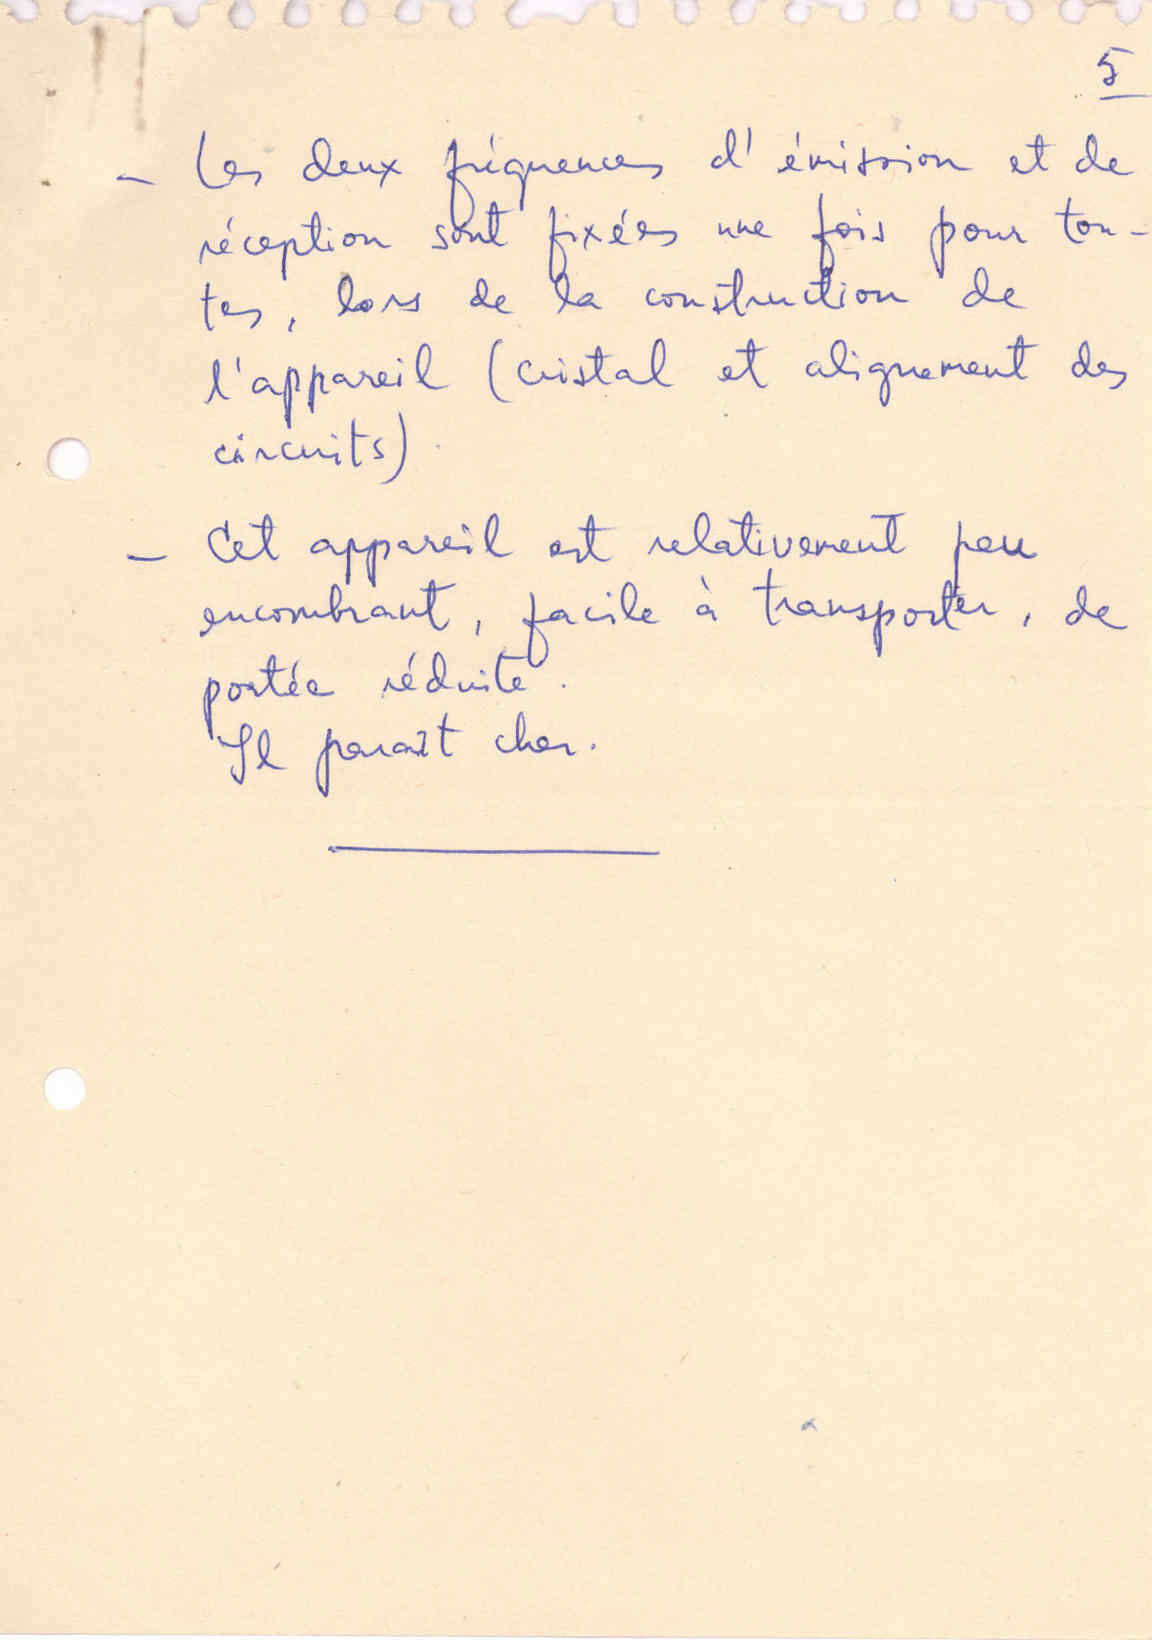 5
– Les deux fréquences d'émission et de
réception sont fixées une fois pour tou-
tes, lors de la construction de
l'appareil (cristal et alignement des
circuits).
– Cet appareil est relativement peu
encombrant, facile à transporter, de
portée réduite.
Il paraît cher.